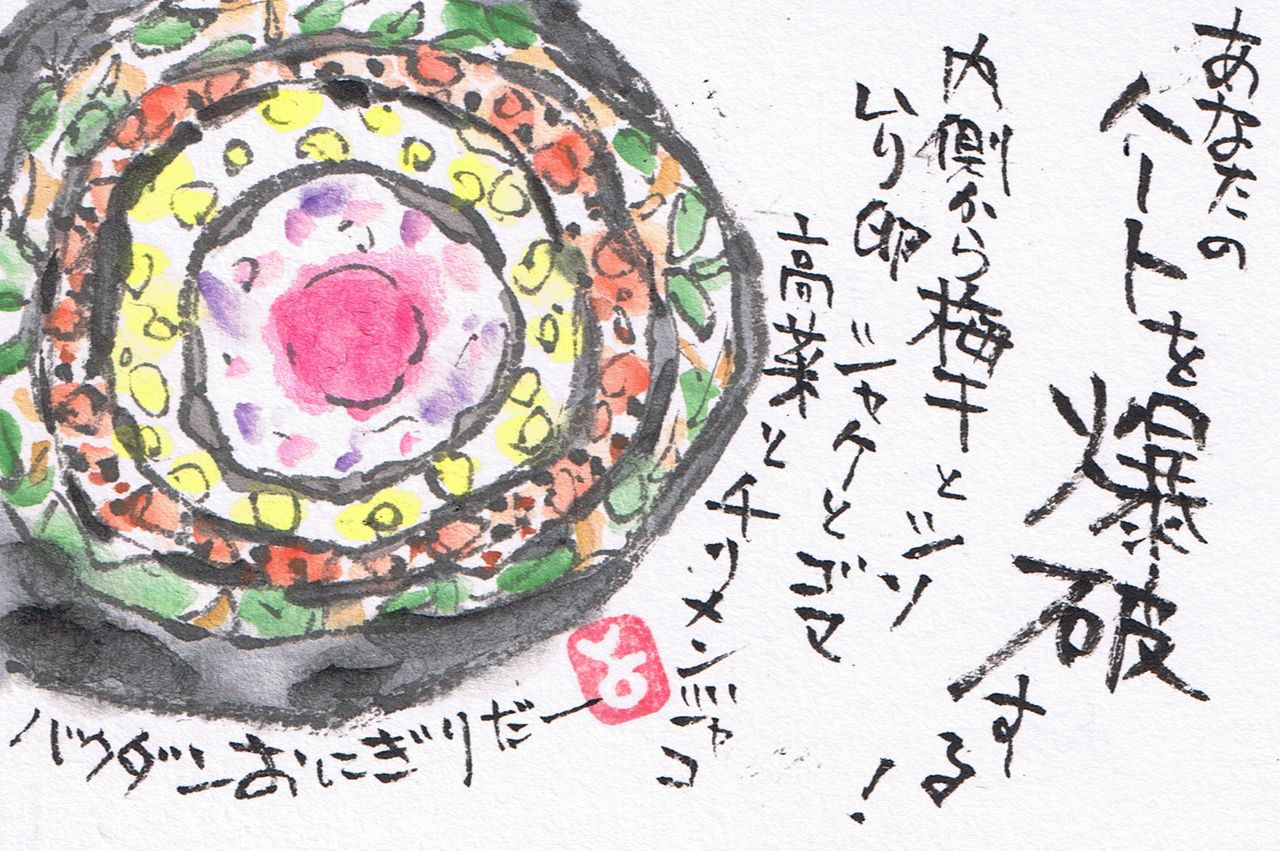 あなたの
ハートを爆破する!
内側から梅干とジソ
いり卵
ジャケとゴマ
高菜とチリメンジャコ
バクダンおにぎりだー